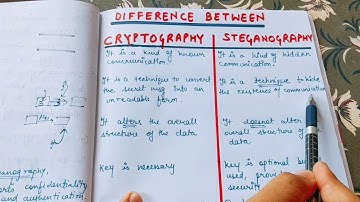 DIFFERENCE BETWEEN
CRYPTOGRAPHY
It is a kind of known
communication.
It is a technique to convert
the secret msg into an
unreadable form.
It alter the overall
structure of the data
Key is necessary
STEGANOGRAPHY
It is a kind of hidden
communication.
It is a technique to hide
the existence of communication
It doesnot alter
overall structure of
data
Key is optional bu
used, prov
security
nography,
orts confidentiality
and authentication.